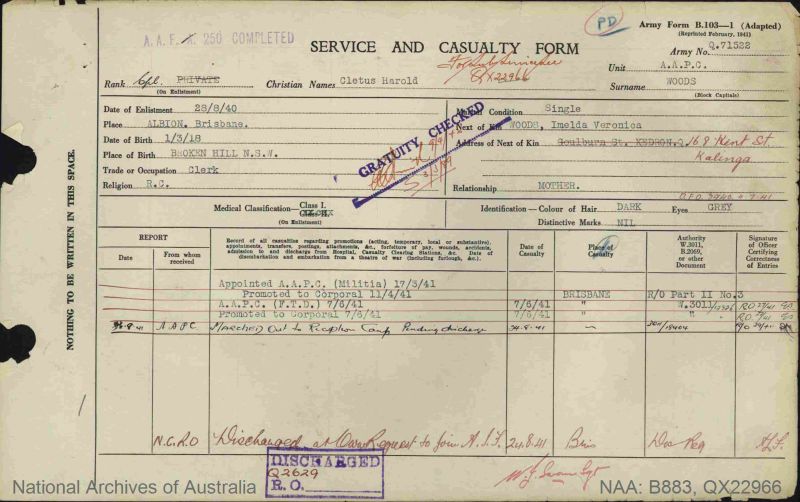 A.A.F. A. 250 COMPLETED
PD
Army Form B.103—1 (Adapted)
(Reprinted February, 1941)
SERVICE AND CASUALTY FORM
Army No. Q.71522
QX22966
Unit A.A.P.C.
Rank Cpl. PRIVATE
(On Enlistment)
Christian Names Cletus Harold
Surname WOODS
(Block Capitals)
Date of Enlistment 28/8/40
Place ALBION, Brisbane.
Date of Birth 1/3/18
Place of Birth BROKEN HILL N.S.W.
Trade or Occupation Clerk
Religion R.C.
GRATUITY CHECKED
Marital Condition Single
Next of Kin WOODS, Imelda Veronica
Address of Next of Kin Goulburn St. KEDRON.Q. 168 Kent St.
Kalinga
Relationship MOTHER.
Medical Classification— Class I.
Class II.
(On Enlistment)
Identification—Colour of Hair DARK Eyes GREY
Distinctive Marks NIL
REPORT
Date
From whom received
Record of all casualties regarding promotions (acting, temporary, local or substantive), appointments, transfers, postings, attachments, &c., forfeiture of pay, wounds, accidents, admission to and discharge from Hospital, Casualty Clearing Stations, &c. Date of disembarkation and embarkation from a theatre of war (including furlough, &c.).
Date of Casualty
Place of Casualty
Authority W.3011, B.2069, or other Document
Signature of Officer Certifying Correctness of Entries
Appointed A.A.P.C. (Militia) 17/3/41
Promoted to Corporal 11/4/41 BRISBANE R/O Part II No.3
A.A.P.C. (F.T.D.) 7/6/41 7/6/41 " W.3011/
Promoted to Corporal 7/6/41 7/6/41 " "
A.A.P.C. Marched Out to Reception Camp Pending discharge 24.8.41
N.G.R.O Discharged at Own Request to join A.I.F. 24.8.41 Bris
DISCHARGED
Q2629
R.O.
NOTHING TO BE WRITTEN IN THIS SPACE.
National Archives of Australia
NAA: B883, QX22966